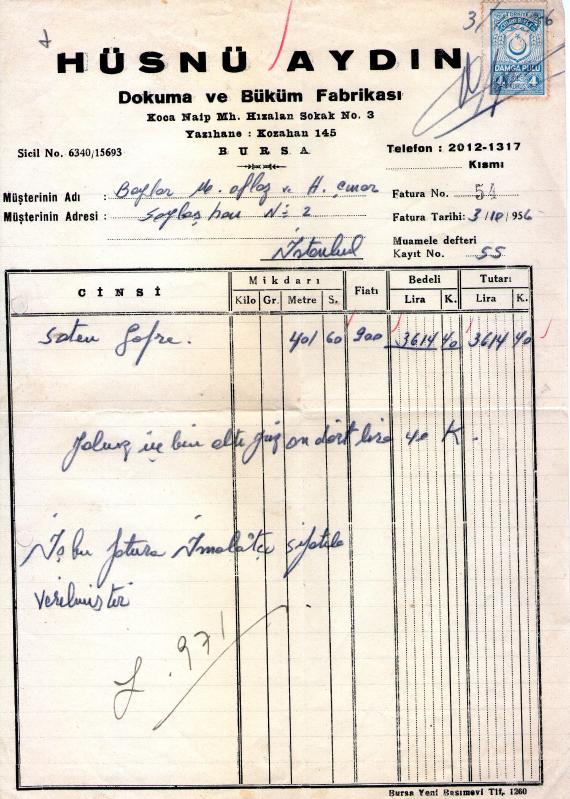 3/ 956
HÜSNÜ AYDIN
DAMGA PULU
4 4
Dokuma ve Büküm Fabrikası
Koca Naip Mh. Hızalan Sokak No. 3
Yazıhane : Kozahan 145
Sicil No. 6340/15693
BURSA
Telefon : 2012-1317
Kısmı
Müşterinin Adı : Baylar M. ve H. Çınar
Fatura No. 54
Müşterinin Adresi : han No 2
Fatura Tarihi: 3/10/956
İstanbul
Muamele defteri
Kayıt No. 55
CİNSİ Mikdarı Fiatı Bedeli Tutarı
Kilo Gr. Metre S. Lira K. Lira K.
Saten Gofre. 401 60 900 3614 40 3614 40
Yalnız üç bin altı yüz on dört lira 40 K.
İş bu fatura İmalâtçı sıfatile
verilmiştir
971
Bursa Yeni Basımevi Tlf. 1260